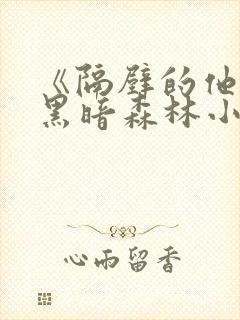 《隔壁的他
黑暗森林小
心雨留香